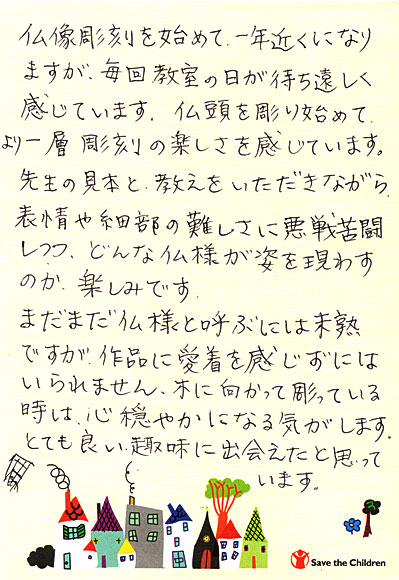 仏像彫刻を始めて、一年近くになり
ますが、毎回教室の日が待ち遠しく
感じています。仏頭を彫り始めて、
より一層彫刻の楽しさを感じています。
先生の見本と、教えをいただきながら、
表情や細部の難しさに悪戦苦闘
しつつ、どんな仏様が姿を現わす
のか、楽しみです。
まだまだ仏様と呼ぶには未熟
ですが、作品に愛着を感じずには
いられません、木に向かって彫っている
時は、心穏やかになる気がします。
とても良い趣味に出会えたと思って
います。
Save the Children